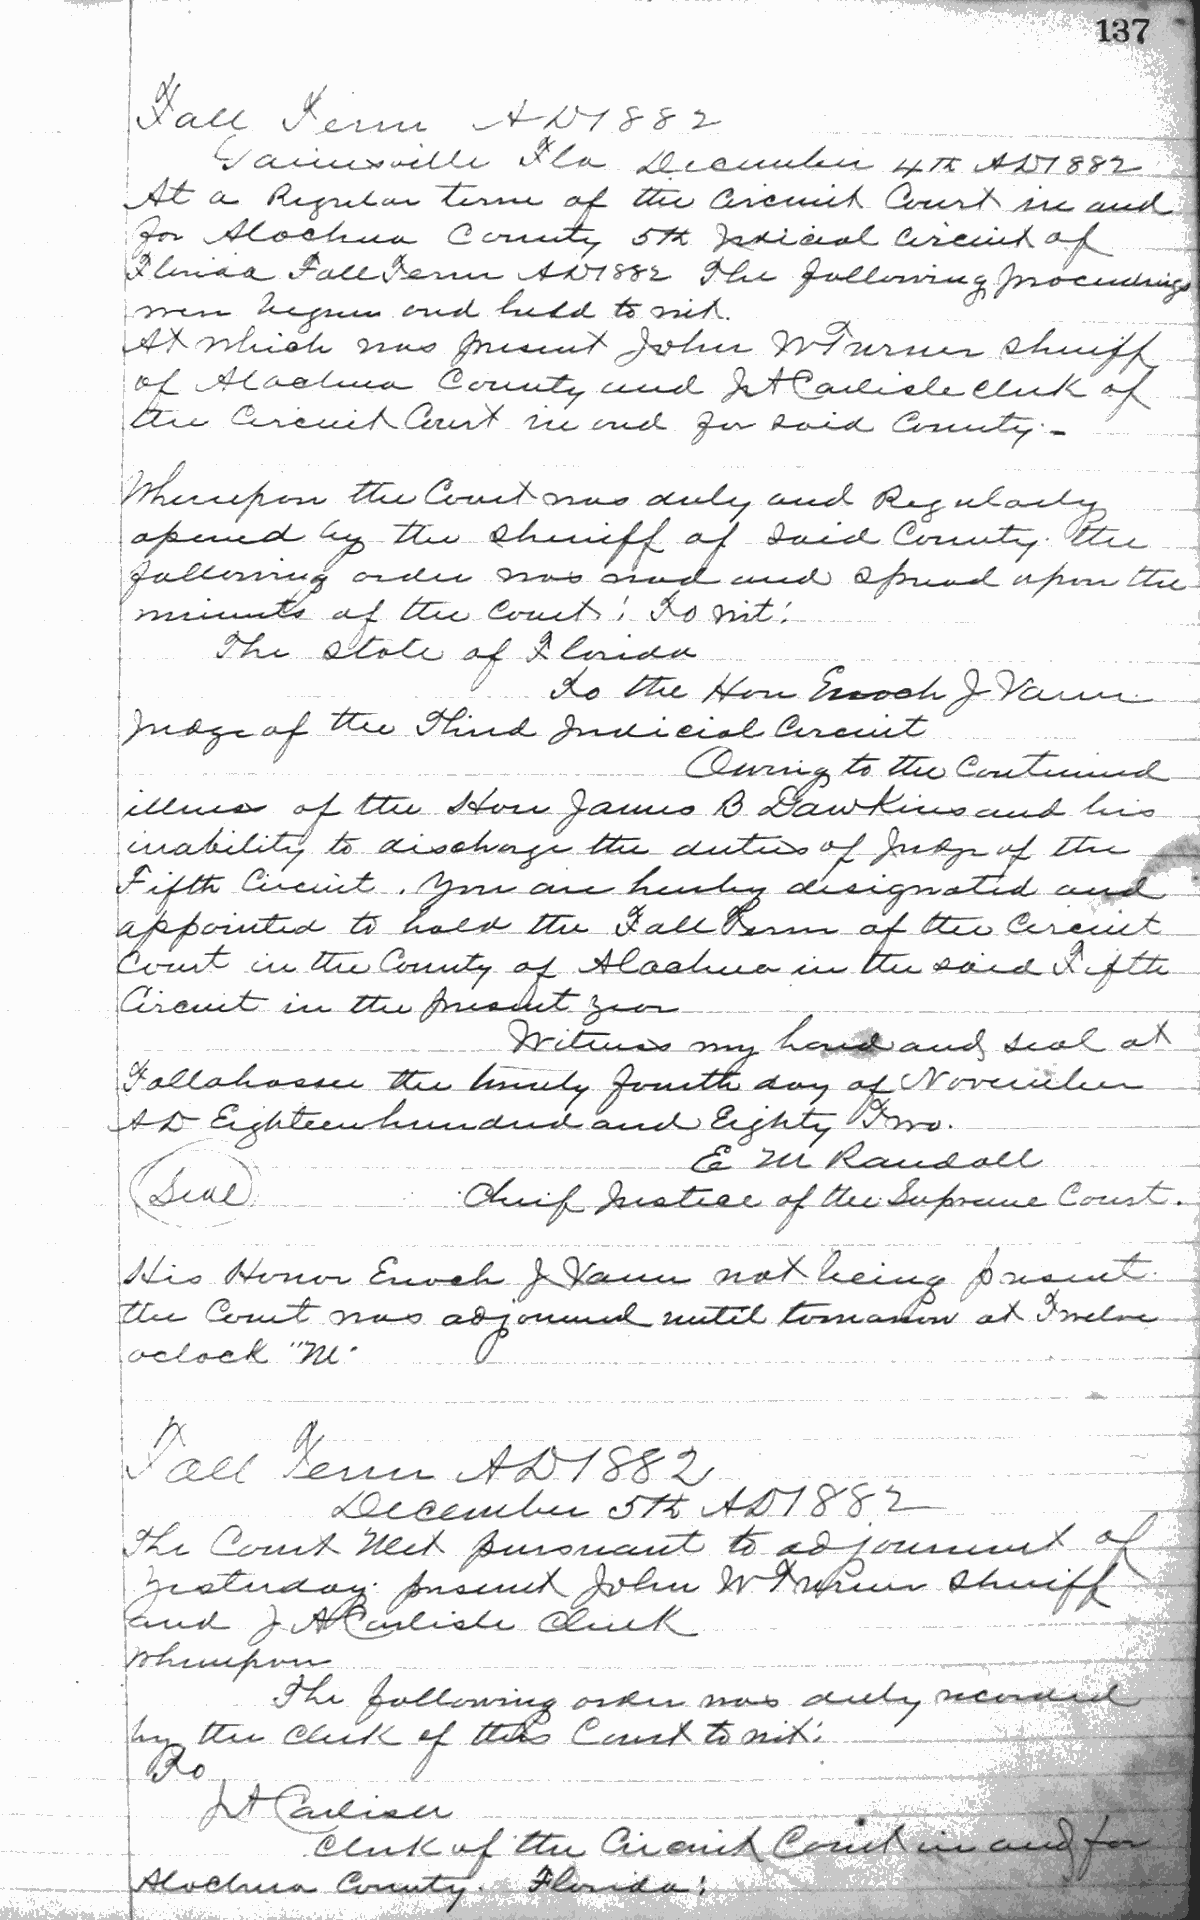 137
Fall Term AD 1882
Gainesville Fla December 4th AD 1882
At a Regular term of the Circuit Court in and
for Alachua County 5th Judicial Circuit of
Florida Fall Term AD 1882 The following proceedings
were begun and held to wit.
At which was present John W Turner Sheriff
of Alachua County and J A Carlisle Clerk of
the Circuit Court in and for said County.-
Whereupon the Court was duly and Regularly
opened by the Sheriff of said County. the
following order was mad and spread upon the
minuts of the Court: To wit:
The State of Florida
To the Hon Enoch J Vann
Judge of the Third Judicial Circuit
Owing to the Continued
illness of the Hon James B Dawkins and his
inability to discharge the duties of Judge of the
Fifth Circuit. You are hereby designated and
appointed to hold the Fall Term of the Circuit
Court in the County of Alachua in the said Fifth
Circuit in the present year
Witness my hand and seal at
Tallahassee the twenty fourth day of November
AD Eighteen hundred and Eighty Two.
E M Randall
(Seal) Chief Justice of the Supreme Court.
His Honor Enoch J Vann not being present.
the Court was adjourned until tomarrow at Twelve
oclock "M"
Fall Term AD 1882
December 5th AD 1882
The Court Met pursuant to adjournment of
yesterday. present John W Turner Sheriff
and J A Carlisle Clerk
Whereupon
The following order was duly recorded
by the Clerk of this Court to wit:
To
J A Carlisle
Clerk of the Circuit Court in and for
Alachua County. Florida: